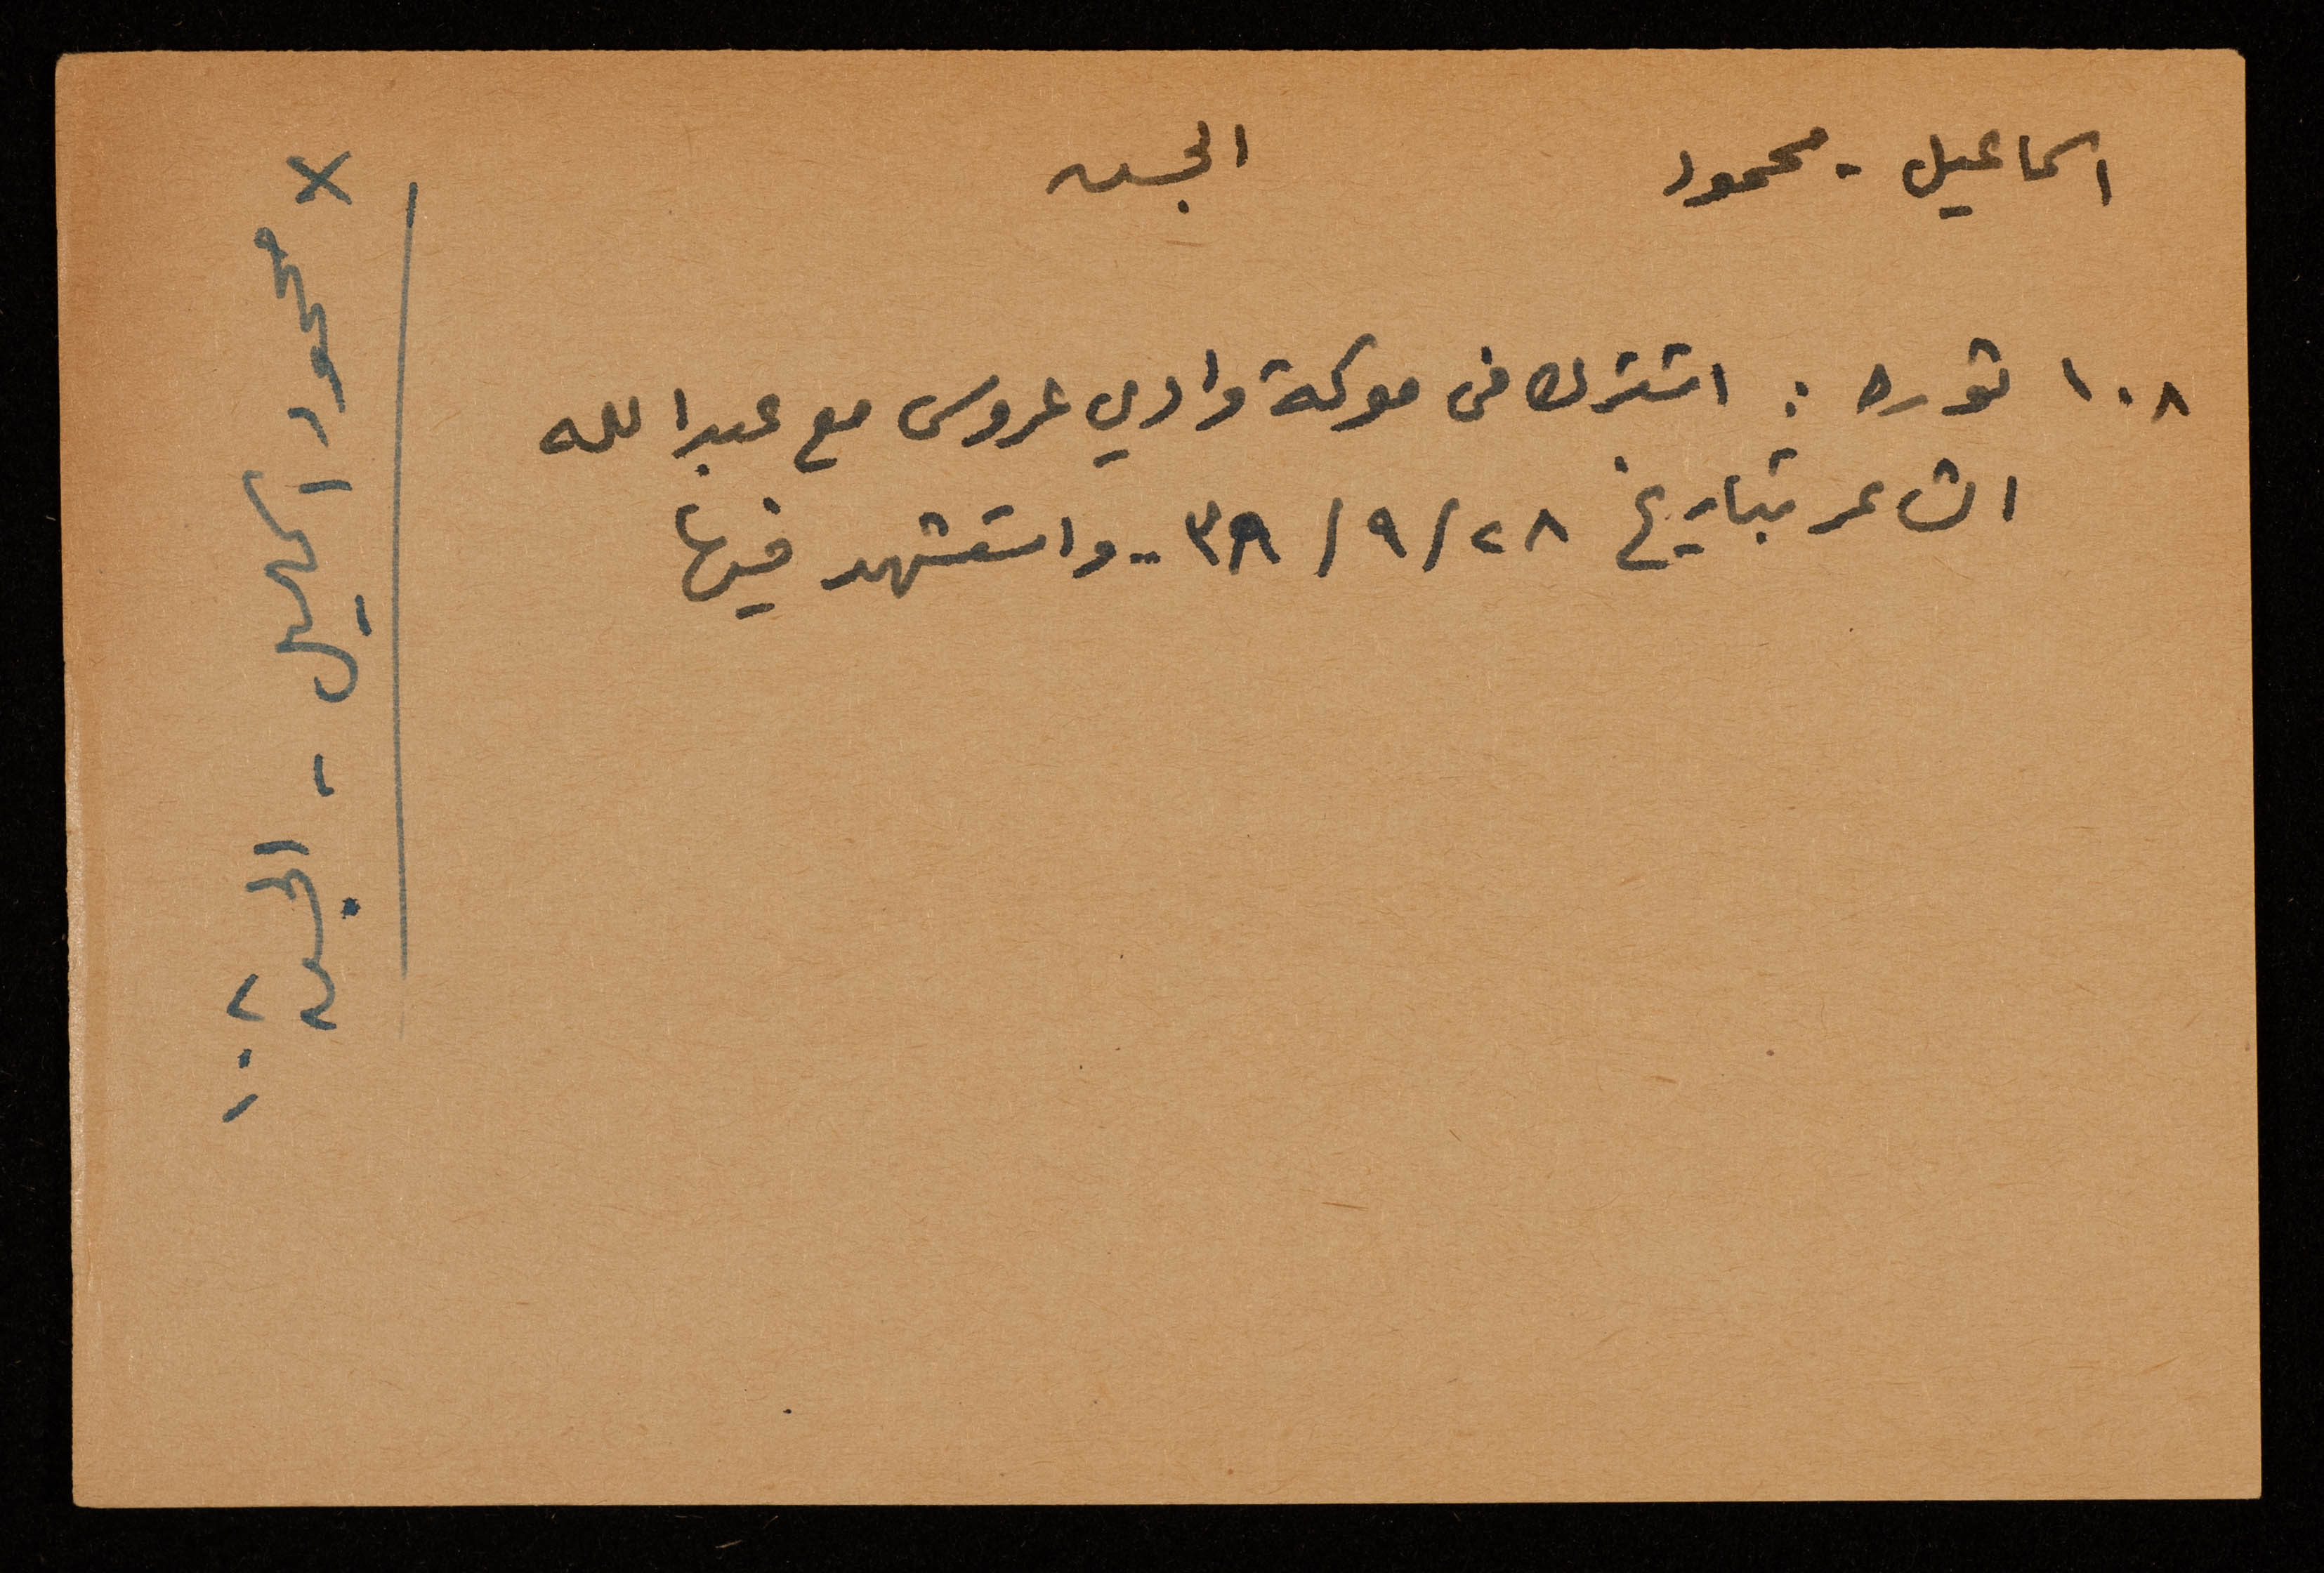 اسماعيل - محمود
الجسر
١٠٨ ثوره : اشترك في معركة وادي عروس مع عبد الله
الشاعر بتاريخ ٢٨/٩/٣٨ - واستشهد فيها
× محمود اسماعيل - الجسر
١٠٨